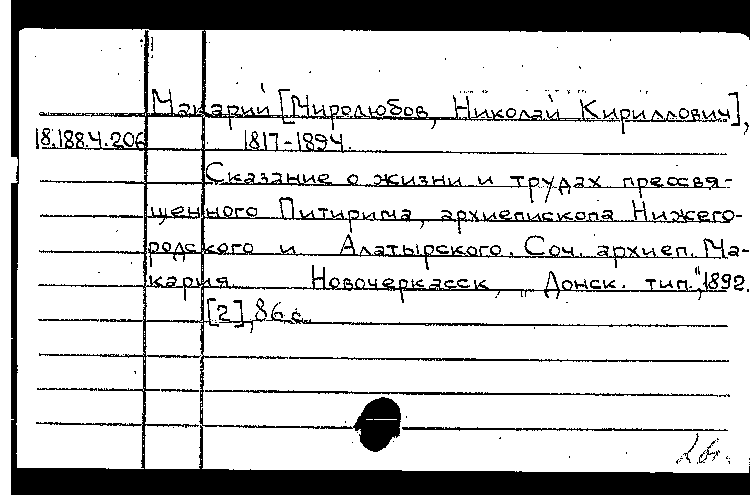 Макарий [Миролюбов, Николай Кириллович],
18.188.4.206 1817-1894.
Сказание о жизни и трудах преосвя-
щенного Питирима, архиепископа Нижего-
родского и Алатырского. Соч. архиеп. Ма-
кария. Новочеркасск, "Донск. тип.", 1892.
[2], 86 с.